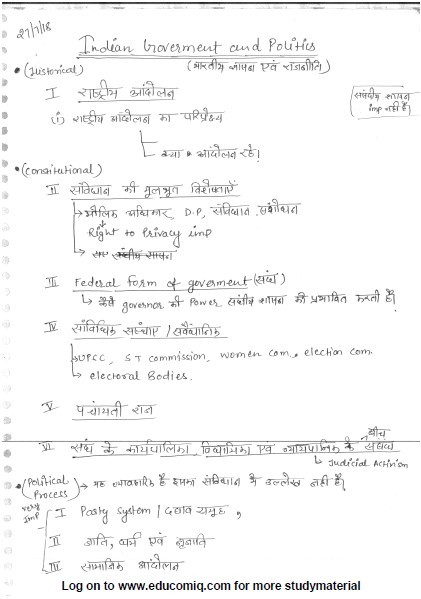 27/7/18
Indian Goverment and Politics
(भारतीय शासन एवं राजनीति)
• (Historical)
I राष्ट्रीय आंदोलन
संसदीय शासन imp नहीं है।
(i) राष्ट्रीय आंदोलन का परिप्रेक्ष्य
क्या आंदोलन रहे।
• (Constitutional)
II संविधान की मूलभूत विशेषताएँ
→ मौलिक अधिकार, D.P, संविधान संशोधन
Right to Privacy imp
→
III Federal form of goverment (संघ)
↳ कैसे governor की Power संघीय शासन को प्रभावित करती है।
IV सांविधिक संस्थाए / संवैधानिक
→ UPCC, ST commission, women com, election com.
→ electoral Bodies.
V पंचायती राज
VI संघ के कार्यपालिका, विधायिका एवं न्यायपालिका के बीच संबंध
↳ Judicial Activism
• (Political Process) → यह व्यवहारिक है इसका संविधान में उल्लेख नहीं है।
very imp
I Party System / दबाव समूह,
II जाति, धर्म एवं नृजाति
III सामाजिक आंदोलन
Log on to www.educomiq.com for more studymaterial